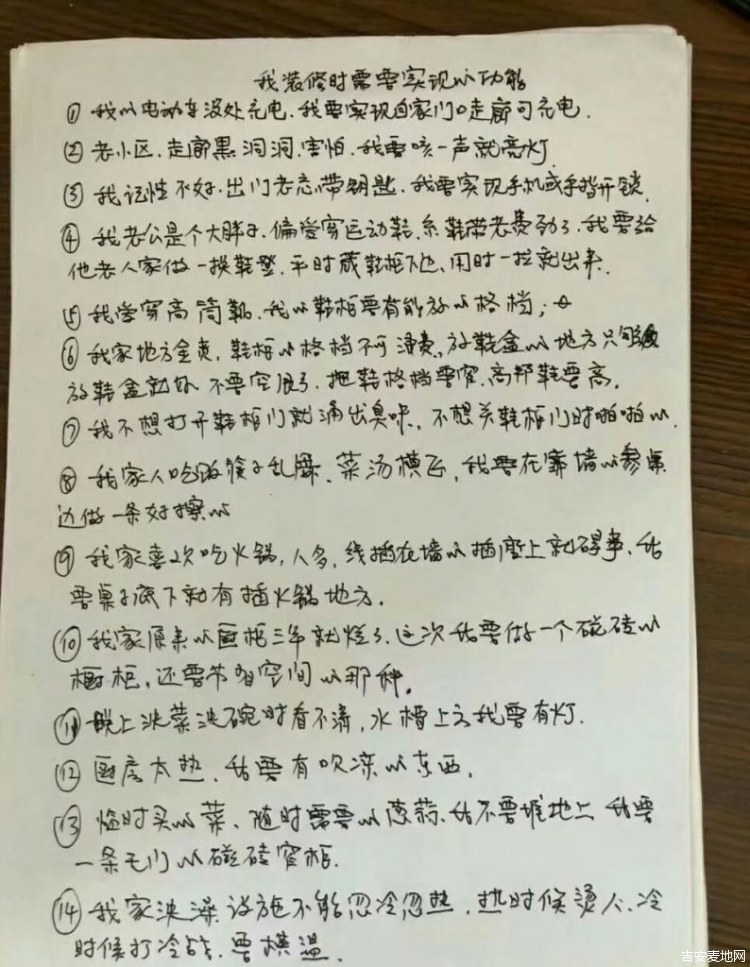 我装修时需要实现的功能
① 我的电动车没处充电.我要实现自家门口走廊可充电.
② 老小区.走廊黑洞洞.害怕.我要咳一声就亮灯
③ 我记性不好.出门老忘带钥匙.我要实现手机或手指开锁.
④ 我老公是个大胖子.偏爱穿运动鞋.系鞋带老费劲了.我要给
他老人家做一换鞋凳.平时藏鞋柜下边.用时一拉就出来.
⑤ 我爱穿高筒靴.我的鞋柜要有能放的格档;
⑥ 我家地方金贵,鞋柜的格档不可浪费.放鞋盒的地方只够
放鞋盒就好 不要空很了.把鞋格档要窄.高帮鞋要高.
⑦ 我不想打开鞋柜门就涌出臭味.不想关鞋柜门时啪啪的.
⑧ 我家人吃饭筷子乱舞.菜汤横飞,我要在靠墙的参桌
边做一条好擦的
⑨ 我家喜欢吃火锅,人多,线插在墙的插座上就碍事.我
要桌子底下就有插火锅地方.
⑩ 我家原来的厨柜三年就烂了.这次我要做一个磁砖的
橱柜,还要节省空间的那种.
⑪ 晚上洗菜洗碗时看不清,水槽上方我要有灯.
⑫ 厨房太热.我要有吹凉的东西.
⑬ 临时买的菜.随时需要的葱蒜.我不要堆地上 我要
一条无门的磁砖窄柜.
⑭ 我家洗澡设施不能忽冷忽热.热时候烫人.冷
时候打冷战.要横温.
吉安麦地网